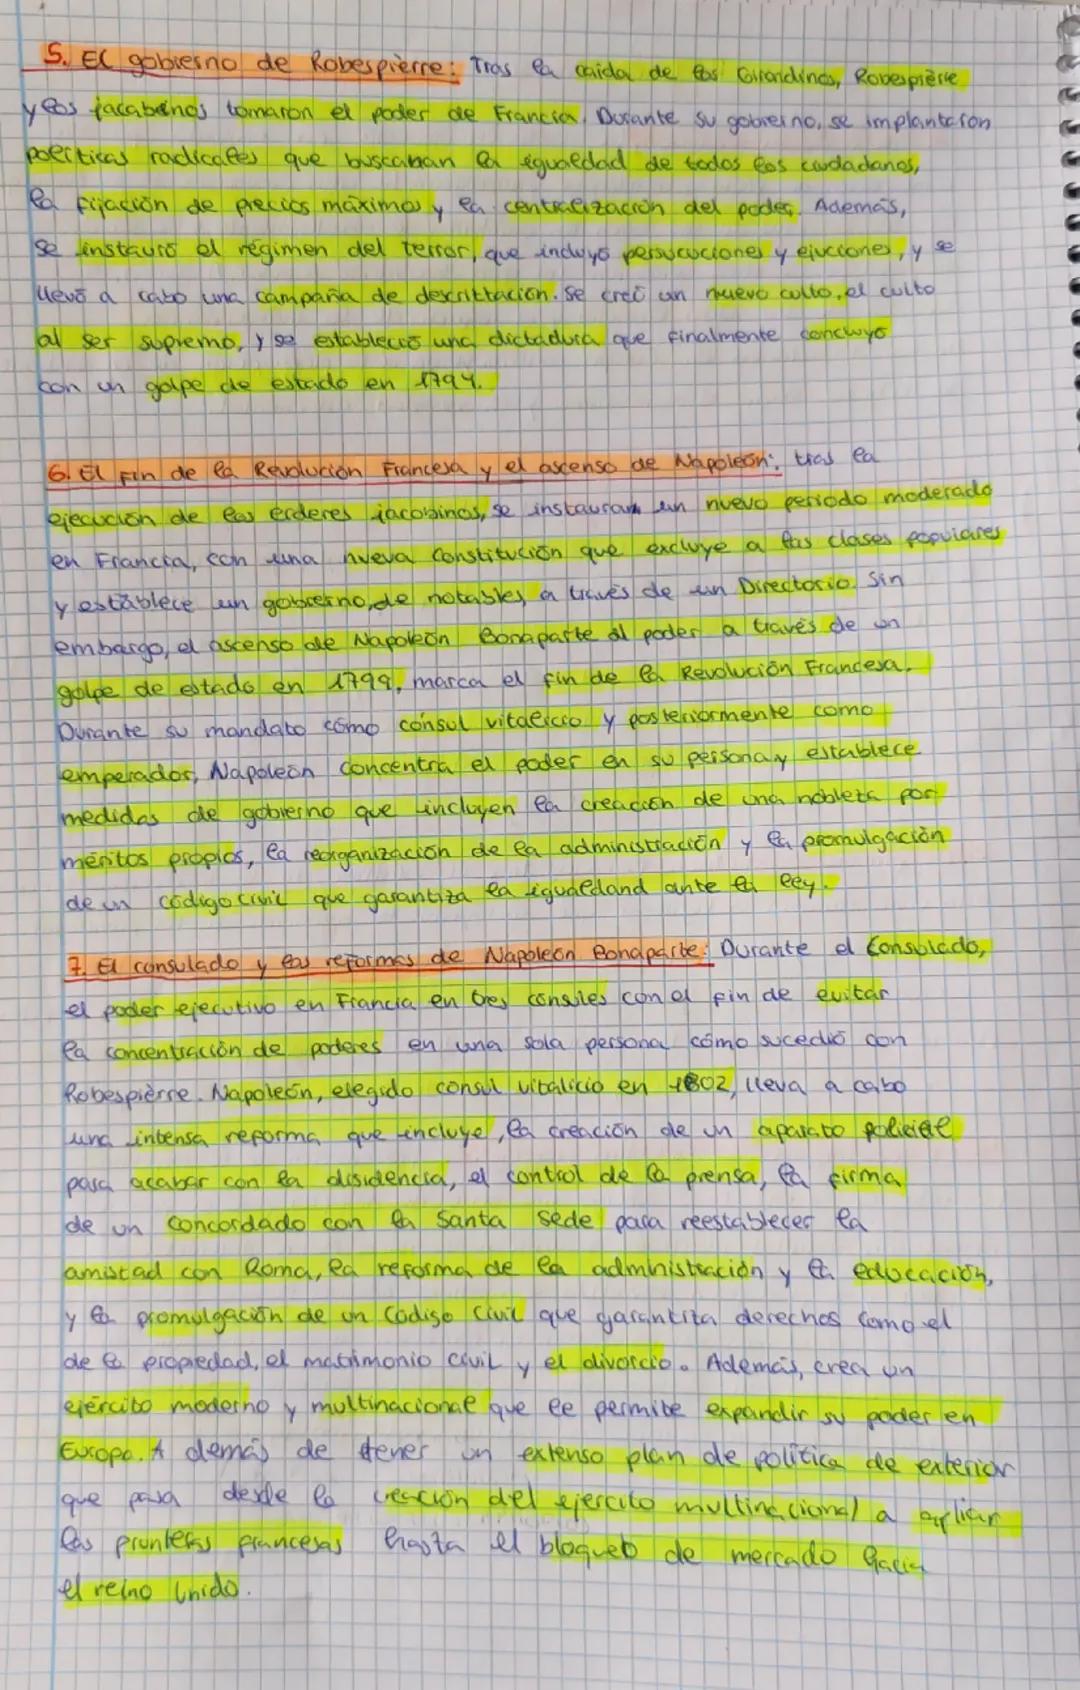 5. El gobierno de Robespièrre: Tras la caida de los Girondinos, Robespièrre
y los jacabinos tomaron el poder de Francia. Durante su gobierno, se implantaron
políticas radicales que buscaban la igualdad de todos los ciudadanos,
la fijación de precios máximos y la centralización del poder. Además,
se instauró el régimen del terror, que incluyó persucuciones y ejucciones, y se
llevó a cabo una campaña de descrittación. Se creó un nuevo culto, el culto
al ser supremo, y se estableció una dictadura que finalmente concluyó
con un golpe de estado en 1794.
6. El Fin de la Revolución Francesa y el ascenso de Napoleón: tras la
ejecución de los érderes jacobinos, se instauram un nuevo periodo moderado
en Francia, con una nueva Constitución que excluye a las clases populares
y establece un gobierno de notables, a través de un Directorio. Sin
embargo, el ascenso de Napoleón Bonaparte al poder a través de un
golpe de estado en 1799, marca el fin de la Revolución Francesa.
Durante su mandato cómo cónsul vitalicio y posteriormente como
emperador, Napoleón concentra el poder en su persona y establece
medidas de gobierno que incluyen la creación de una nobleza por
méritos propios, la reorganización de la administración y la promulgación
de un código civil que garantiza la igualdand ante la ley.
7. El consulado y las reformas de Napoleón Bonaparte: Durante el Consulado,
el poder ejecutivo en Francia en tres consules con el fin de evitar
la concentración de poderes en una sola persona cómo sucedió con
Robespièrre. Napoleón, elegido consul vitalicio en 1802, lleva a cabo
una intensa reforma que incluye, la creación de un aparato policial
para acabar con la disidencia, el control de la prensa, la firma
de un concordado con la Santa Sede para reestablecer la
amistad con Roma, la reforma de la administración y la educación,
y la promulgación de un Código Civil que garantiza derechos como el
de la propiedad, el matrimonio civil y el divorcio. Además, crea un
ejército moderno y multinacional que le permite expandir su poder en
Europa. A demás de tener un extenso plan de política de exterior
que pasa desde la creación del ejercito multinacional a apliar
las fronteras francesas hasta el bloqueo de mercado hacia
el reino Unido.